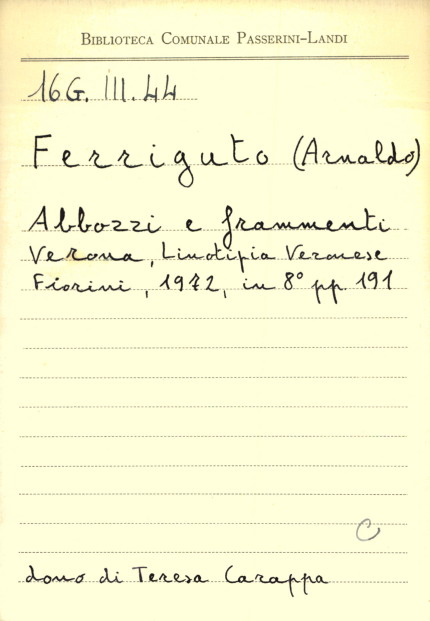 BIBLIOTECA COMUNALE PASSERINI-LANDI
16G. III. 44
Ferriguto (Arnaldo)
Abbozzi e frammenti
Verona, Linotipia Veronese
Fiorini, 1972, in 8° pp. 191
C
dono di Teresa Carappa